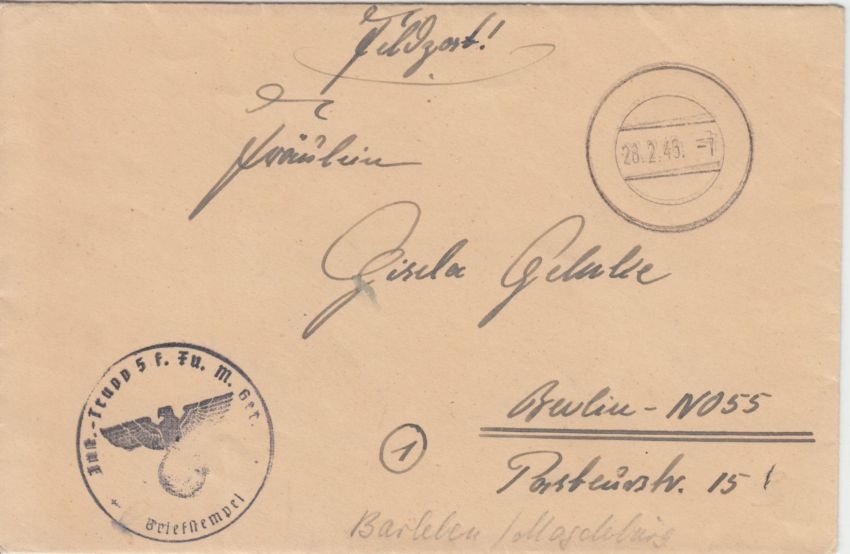 Feldpost!
28.2.43. -7
Fräulein
Gisela Gehrke
Trupp 5 f. Fu. M. Ger.
Briefstempel
1
Berlin - NO55
Pasteurstr. 15
Barleben / Magdeburg